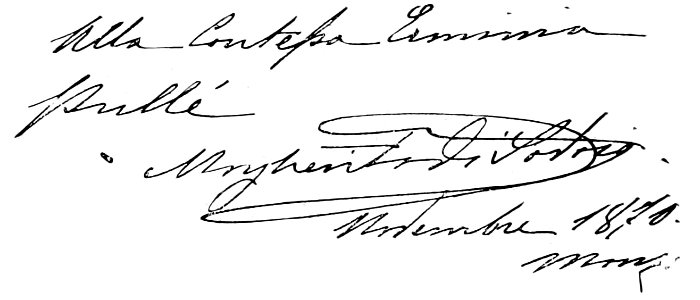 Alla Contessa Erminia
Pullé
Margherita di Savoia.
Novembre 1870.